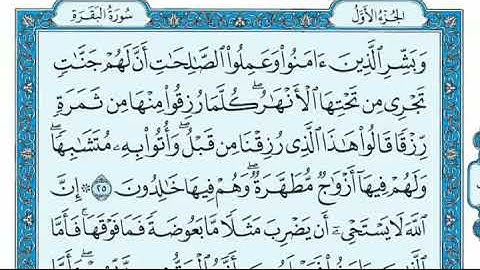 سُورَةُ البَقَرَةِ
الجُزْءُ الأَوَّلُ
وَبَشِّرِ الَّذِينَ ءَامَنُوا وَعَمِلُوا الصَّالِحَاتِ أَنَّ لَهُمْ جَنَّاتٍ
تَجْرِي مِن تَحْتِهَا الْأَنْهَارُ ۖ كُلَّمَا رُزِقُوا مِنْهَا مِن ثَمَرَةٍ
رِّزْقًا قَالُوا هَٰذَا الَّذِي رُزِقْنَا مِن قَبْلُ ۖ وَأُتُوا بِهِ مُتَشَابِهًا ۖ
وَلَهُمْ فِيهَا أَزْوَاجٌ مُّطَهَّرَةٌ ۖ وَهُمْ فِيهَا خَالِدُونَ ٢٥ ۞ إِنَّ
اللَّهَ لَا يَسْتَحْيِي أَن يَضْرِبَ مَثَلًا مَّا بَعُوضَةً فَمَا فَوْقَهَا ۚ فَأَمَّا